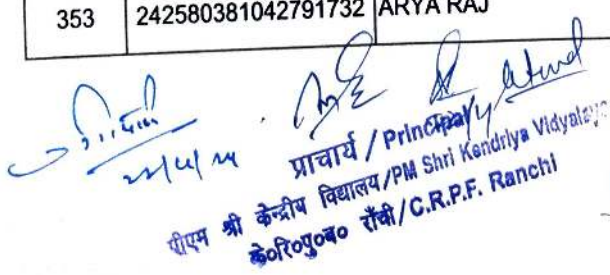 353 242580381042791732 ARYA RAJ
प्राचार्य / Principal
पीएम श्री केन्द्रीय विद्यालय/PM Shri Kendriya Vidyalaya
के०रि०पु०ब० राँची/C.R.P.F. Ranchi